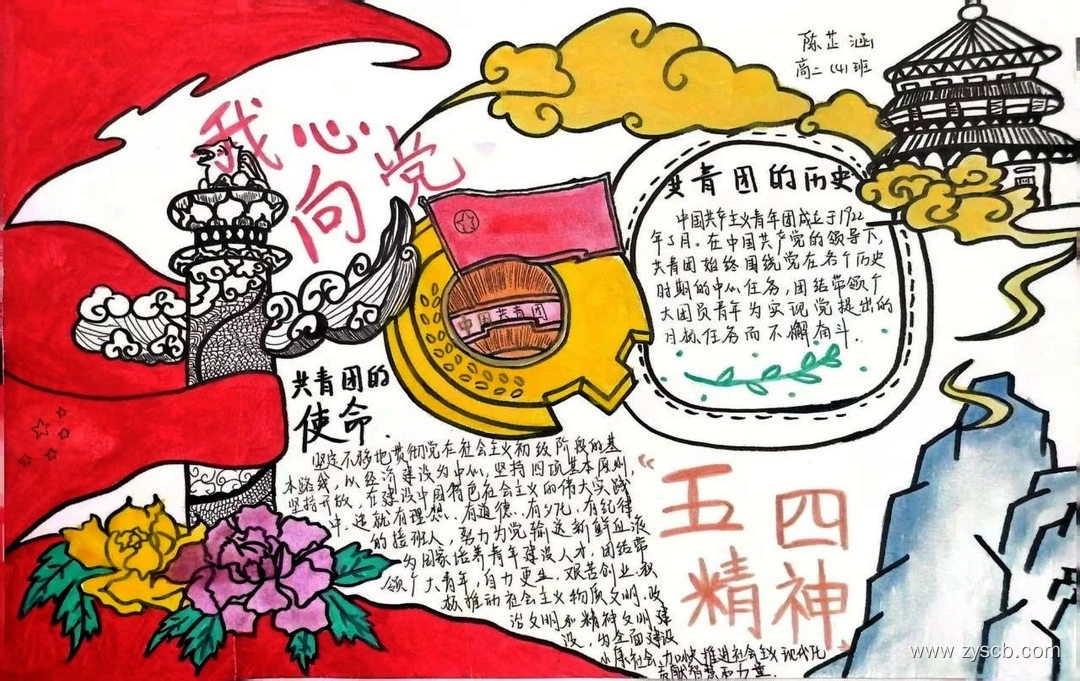 陈芷涵
高二(4)班
我心向党
共青团的历史
中国共产主义青年团成立于1922
年5月。在中国共产党的领导下,
共青团始终围绕党在各个历史
时期的中心任务,团结带领广
大团员青年为实现党提出的
目标任务而不懈奋斗.
中国共青团
共青团的
使命.
坚定不移地贯彻党在社会主义初级阶段的基
本路线,以经济建设为中心,坚持四项基本原则,
坚持开放,在建设中国特色社会主义的伟大实践
中,造就有理想、有道德、有文化、有纪律
的接班人,努力为党输送新鲜血液
为国家培养青年建设人才,团结带
领广大青年,自力更生,艰苦创业,积
极推动社会主义物质文明、政
治文明和精神文明建
设,为全面建设
小康社会、加快推进社会主义现代化
贡献智慧和力量.
“五四
精神
www.zyscb.com